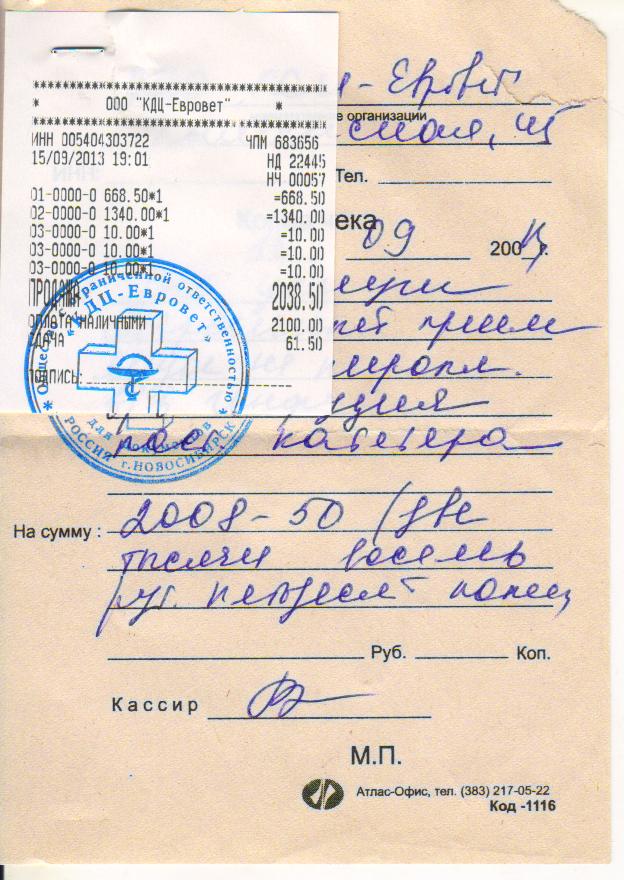 *********************************
* ООО "КДЦ-Евровет" *
*********************************
ИНН 005404303722 ЧПМ 683656
15/09/2013 19:01 НД 22445
НЧ 00057
01-0000-0 668.50*1 =668.50
02-0000-0 1340.00*1 =1340.00
03-0000-0 10.00*1 =10.00
03-0000-0 10.00*1 =10.00
03-0000-0 10.00*1 =10.00
ПРОДАЖА 2038.50
ОПЛАТА НАЛИЧНЫМИ 2100.00
СДАЧА 61.50
ПОДПИСЬ:
Общество с ограниченной ответственностью
«КДЦ-Евровет»
для документов
* РОССИЯ г.НОВОСИБИРСК *
- Евровет
е организации
, 45
Тел.
ека
09 200 г.
прием
катетера
На сумму : 2008-50 (две
тысячи восемь
руб. пятьдесят копеек
Руб. Коп.
Кассир
М.П.
Атлас-Офис, тел. (383) 217-05-22
Код -1116